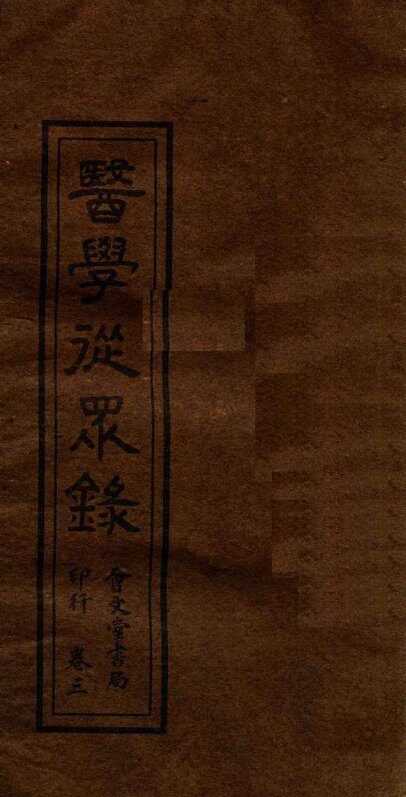 醫學從眾錄
會文堂書局
印行 卷三